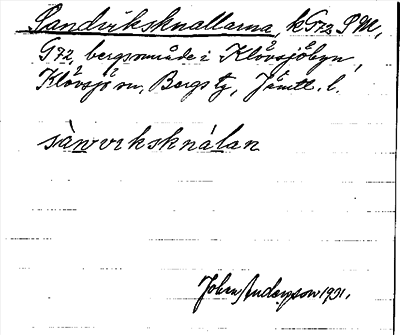 Sandviksknallarna, k G72 S M,
G72, bergsområde i Klövsjöbyn,
Klövsjö sn, Bergs tg, Jämtl. l.
sànvviksknálan
John Anderson 1931.